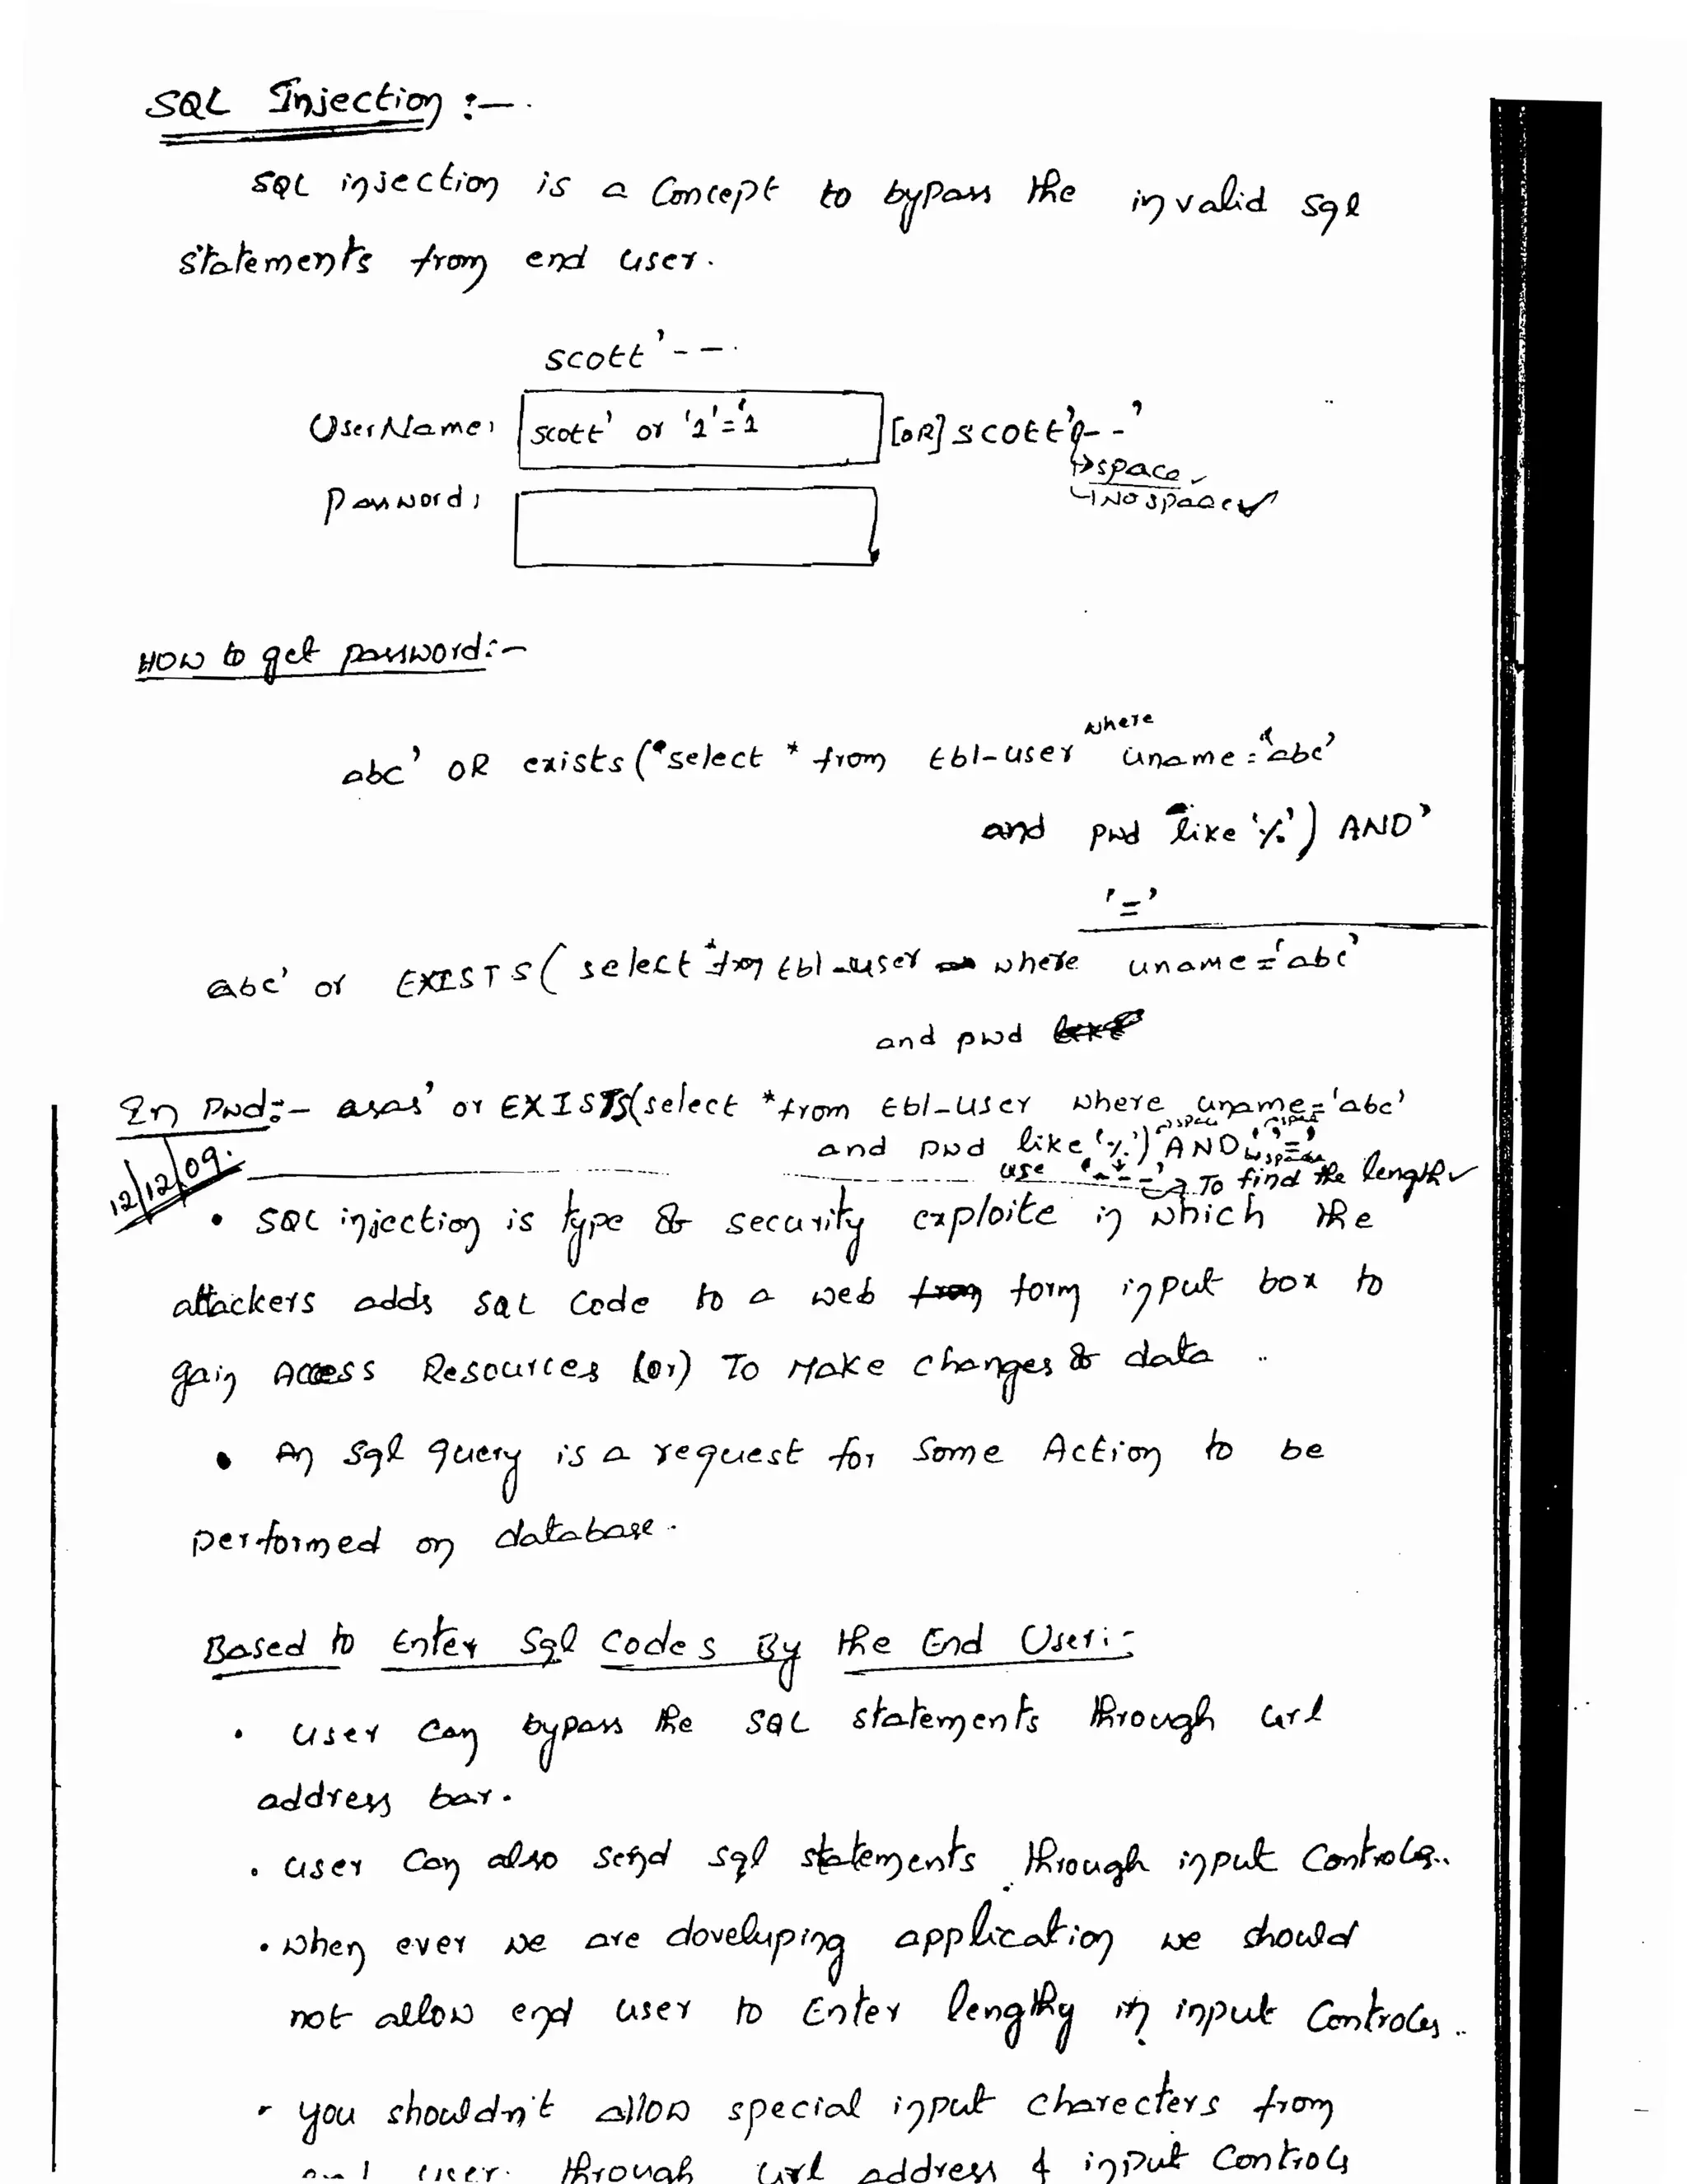 SQL Injection :-.
SQL injection is a Concept to bypass the invalid sql
statements from end user.
scott' - - .
UserName: scott' or '1'='1 [OR] scott' - - '
→ space ✓
↳ No space ✓
password:
How to get password:-
where
abc' OR exists ( select * from tbl-user uname = 'abc'
and pwd like '%') AND '
'='
abc' or EXISTS ( select * from tbl-user where uname = 'abc'
and pwd
In pwd:- asas' or EXISTS(select * from tbl-user where uname='abc'
and pwd like '%') AND ' '='
use '- - -' → To find the length ✓
12/12/09.
• SQL injection is type & security exploite in which the
attackers adds SQL Code to a web form input box to
gain Access Resources (or) To Make changes & data ..
• An sql query is a request for Some Action to be
performed on database.
Based to Enter Sql Codes By the End User:-
• user can bypass the SQL statements through url
address bar.
• user can also send sql statements through input Controls..
• when ever we are doveluping application we should
not allow end user to Enter lengthy in input Controls ..
• you shouldn't allow special input charecters from
end user. through url address & input Controls